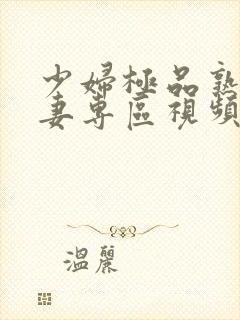 少婦極品熟
妻專區視頻
溫麗